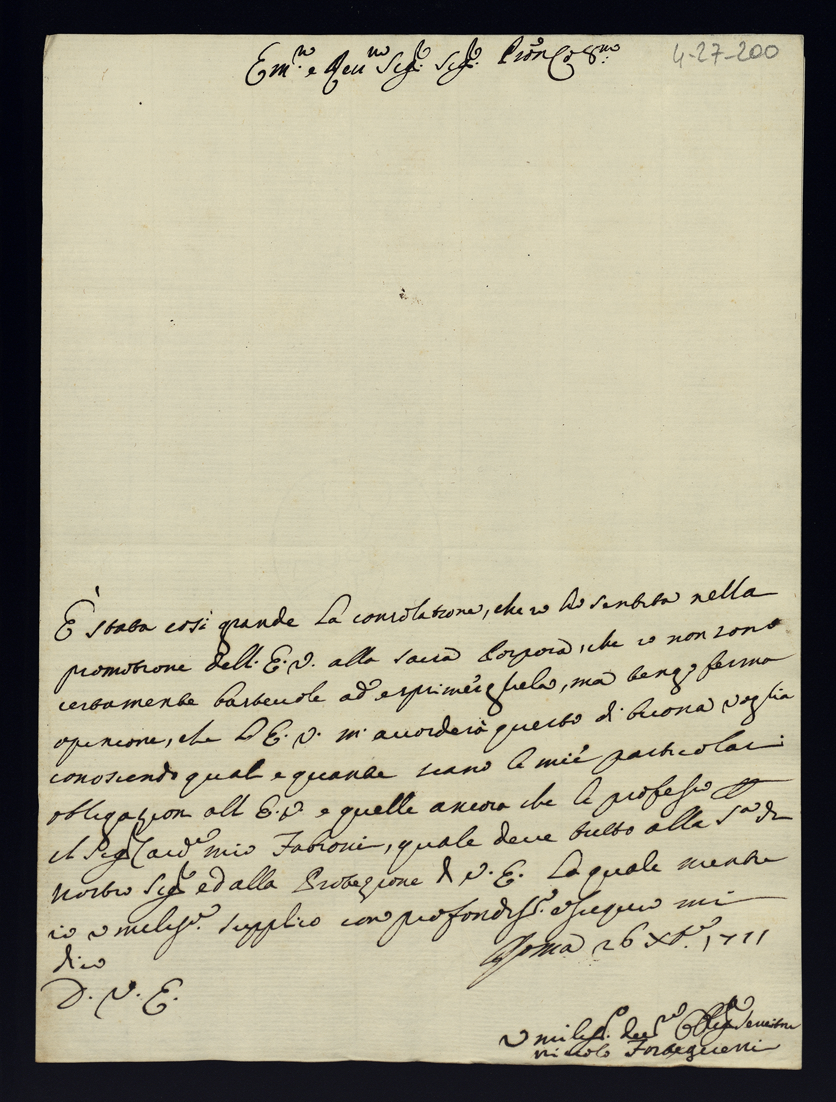 Em.mo e Reu.mo Sig.r Sig.r Pron Co
4-27-200
È stata così grande la consolatione, che io hò sentita nella
promotione dell'E. V. alla sacra Porpora, che io non sono
certamente basteuole ad esprimergliela, ma tengo ferma
openione, che l'E. V. m'accorderà questo di buona voglia
conoscendo quali e quante siano le mie particolari
obligazioni all'E. V. e quelle ancora che le professo
il Sig.r Card.le mio Fabroni, quale deve tutto alla S.tà di
Nostro Sig.re ed alla Protezione di V. E. la quale mentre
io umiliss.e supplico con profondiss.o ossequio mi
dico
D. V. E.
Roma 26 Xb.re 1711
Umiliss.o Deu.mo Obblig.mo Seruitore
Niccolò Forteguerri